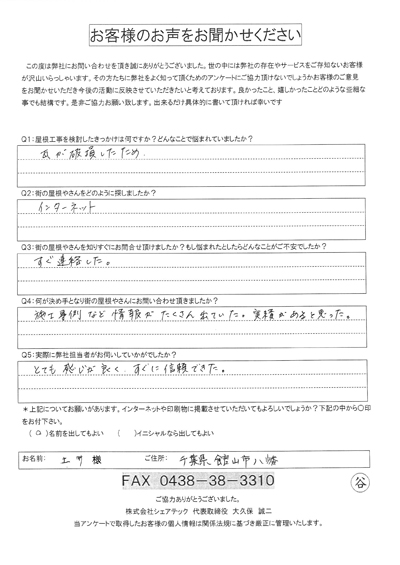 お客様のお声をお聞かせください
この度は弊社にお問い合わせを頂き誠にありがとうございました。世の中には弊社の存在やサービスをご存知ないお客様
が沢山いらっしゃいます。その方たちに弊社をよく知って頂くためのアンケートにご協力頂けないでしょうかお客様のご意見
をお聞かせいただき今後の活動に反映させていただきたいと考えております。良かったこと、嬉しかったことどのような些細な
事でも結構です。是非ご協力お願い致します。出来るだけ具体的に書いて頂ければ幸いです
Q1：屋根工事を検討したきっかけは何ですか？どんなことで悩まれていましたか？
瓦が破損したため
Q2：街の屋根やさんをどのように探しましたか？
インターネット
Q3：街の屋根やさんを知りすぐにお問合せ頂けましたか？もし悩まれたとしたらどんなことがご不安でしたか？
すぐ連絡した。
Q4：何が決め手となり街の屋根やさんにお問い合わせ頂きましたか？
施工事例など情報がたくさん出ていた。実績があると思った。
Q5：実際に弊社担当者がお伺いしていかがでしたか？
とても感じが良く、すぐに信頼できた。
＊上記についてお願いがあります。インターネットや印刷物に掲載させていただいてもよろしいでしょうか？下記の中から〇印
をお付下さい。
（○）名前を出してもよい （ ）イニシャルなら出してもよい
お名前： 様 ご住所： 千葉県館山市八幡
FAX 0438-38-3310
谷
ご協力ありがとうございました。
株式会社シェアテック 代表取締役 大久保 誠二
当アンケートで取得したお客様の個人情報は関係法規に基づき厳正に管理いたします。